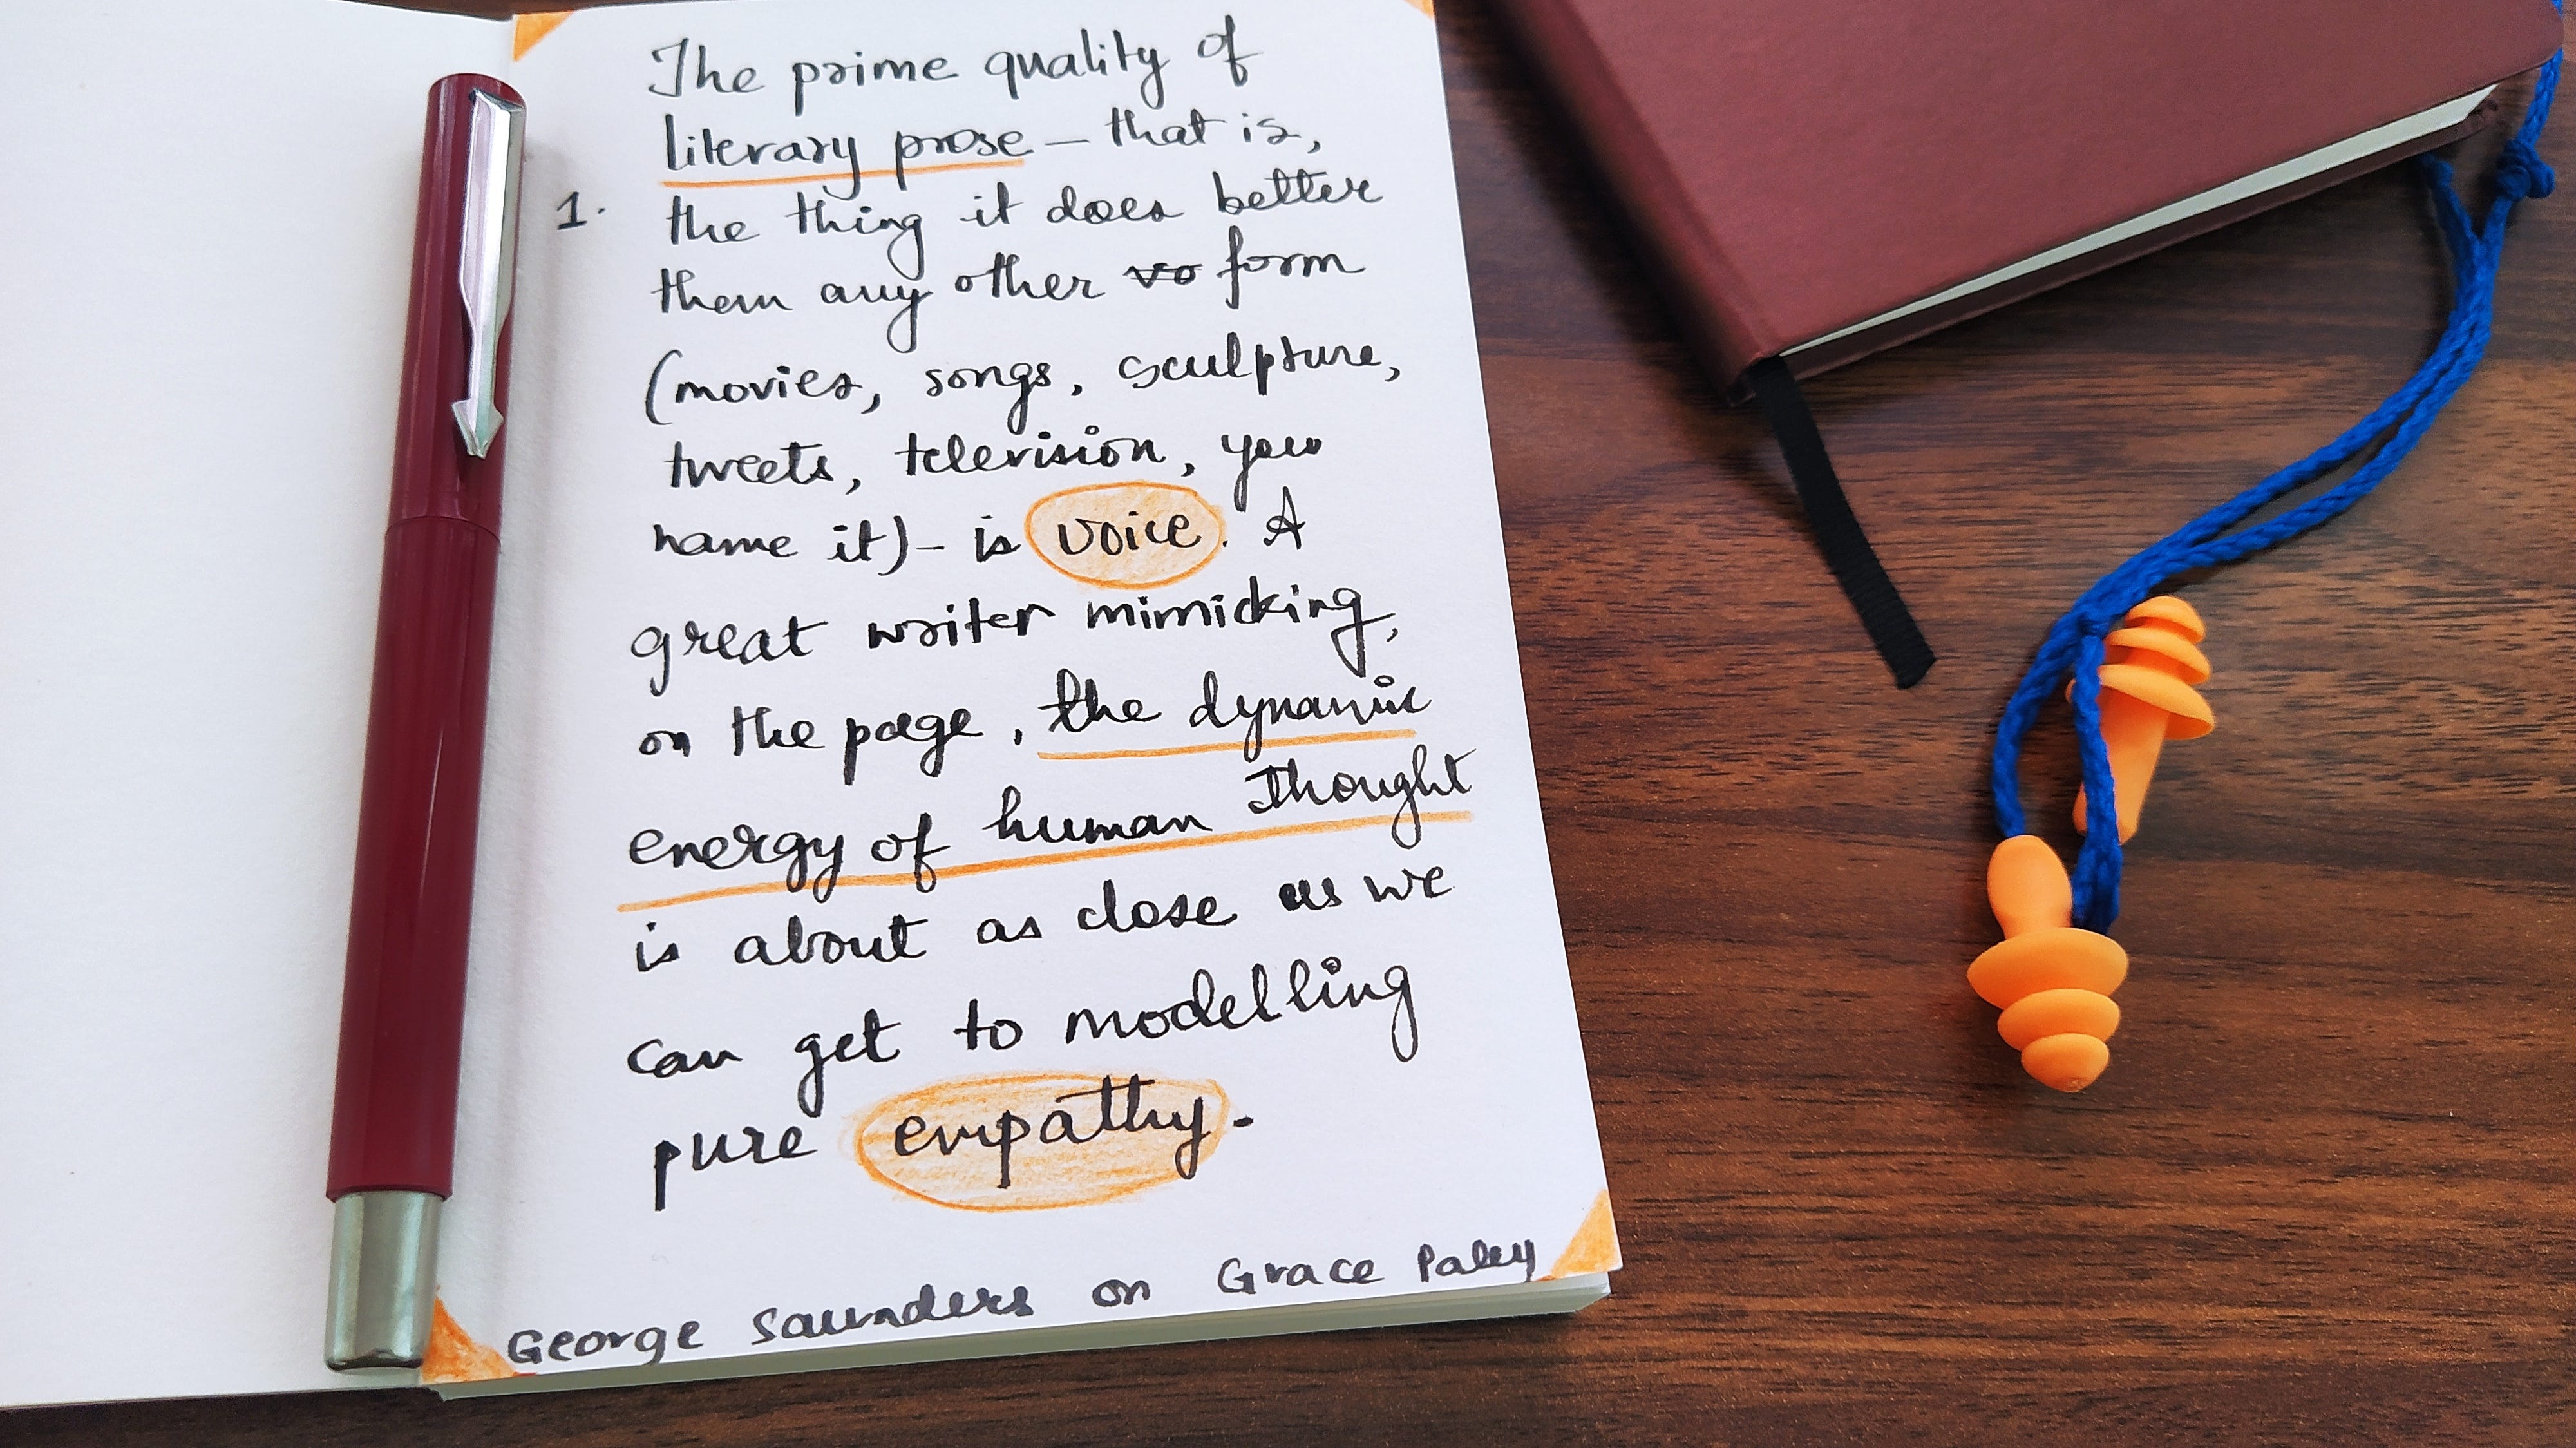 The prime quality of
literary prose – that is,
1. the thing it does better
them any other vo form
(movies, songs, sculpture,
tweets, television, you
name it) – is voice. A
great writer mimicking,
on the page, the dynamic
energy of human thought
is about as close as we
can get to modelling
pure empathy.
George Saunders on Grace Paley